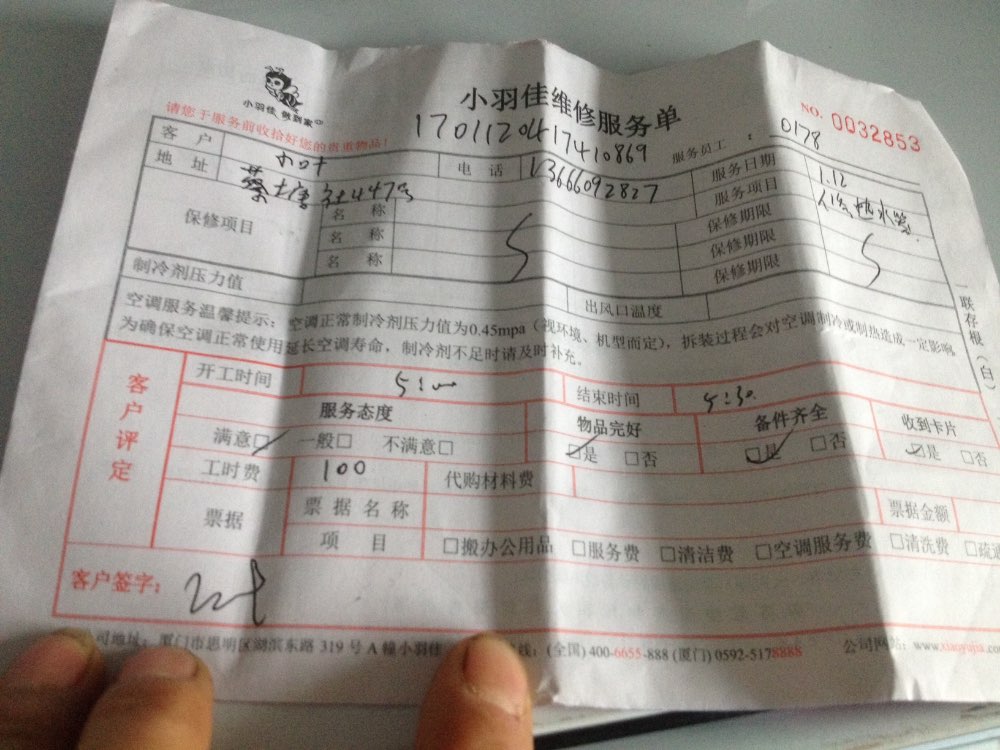 小羽佳 做到家
小羽佳维修服务单
NO. 0032853
请您于服务前收拾好您的贵重物品!
1701120417410869
服务员工: 0178
客户
电话 13666092827
服务日期 1.12
地址 蔡塘社447号
服务项目 热水器
保修项目
名称 保修期限
名称 保修期限
名称 保修期限
制冷剂压力值
出风口温度
空调服务温馨提示: 空调正常制冷剂压力值为0.45mpa(视环境、机型而定), 拆装过程会对空调制冷或制热造成一定影响。
为确保空调正常使用延长空调寿命, 制冷剂不足时请及时补充。
一联存根(白)
客户评定
开工时间 5:00
结束时间 5:30
服务态度 物品完好 备件齐全 收到卡片
满意□ 一般□ 不满意□ □是 □否 □是 □否 □是 □否
工时费 100 代购材料费
票据
票据名称 票据金额
项目 □搬办公用品 □服务费 □清洁费 □空调服务费 □清洗费 □疏通
客户签字:
公司地址: 厦门市思明区湖滨东路 319 号 A 幢小羽佳 线: (全国) 400-6655-888 (厦门) 0592-5178888 公司网站: www.xiaoyujia.com